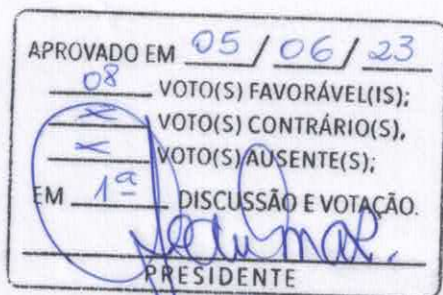 APROVADO EM 05 / 06 / 23
08 VOTO(S) FAVORÁVEL(IS);
x VOTO(S) CONTRÁRIO(S),
x VOTO(S) AUSENTE(S);
EM 1ª DISCUSSÃO E VOTAÇÃO.
PRESIDENTE